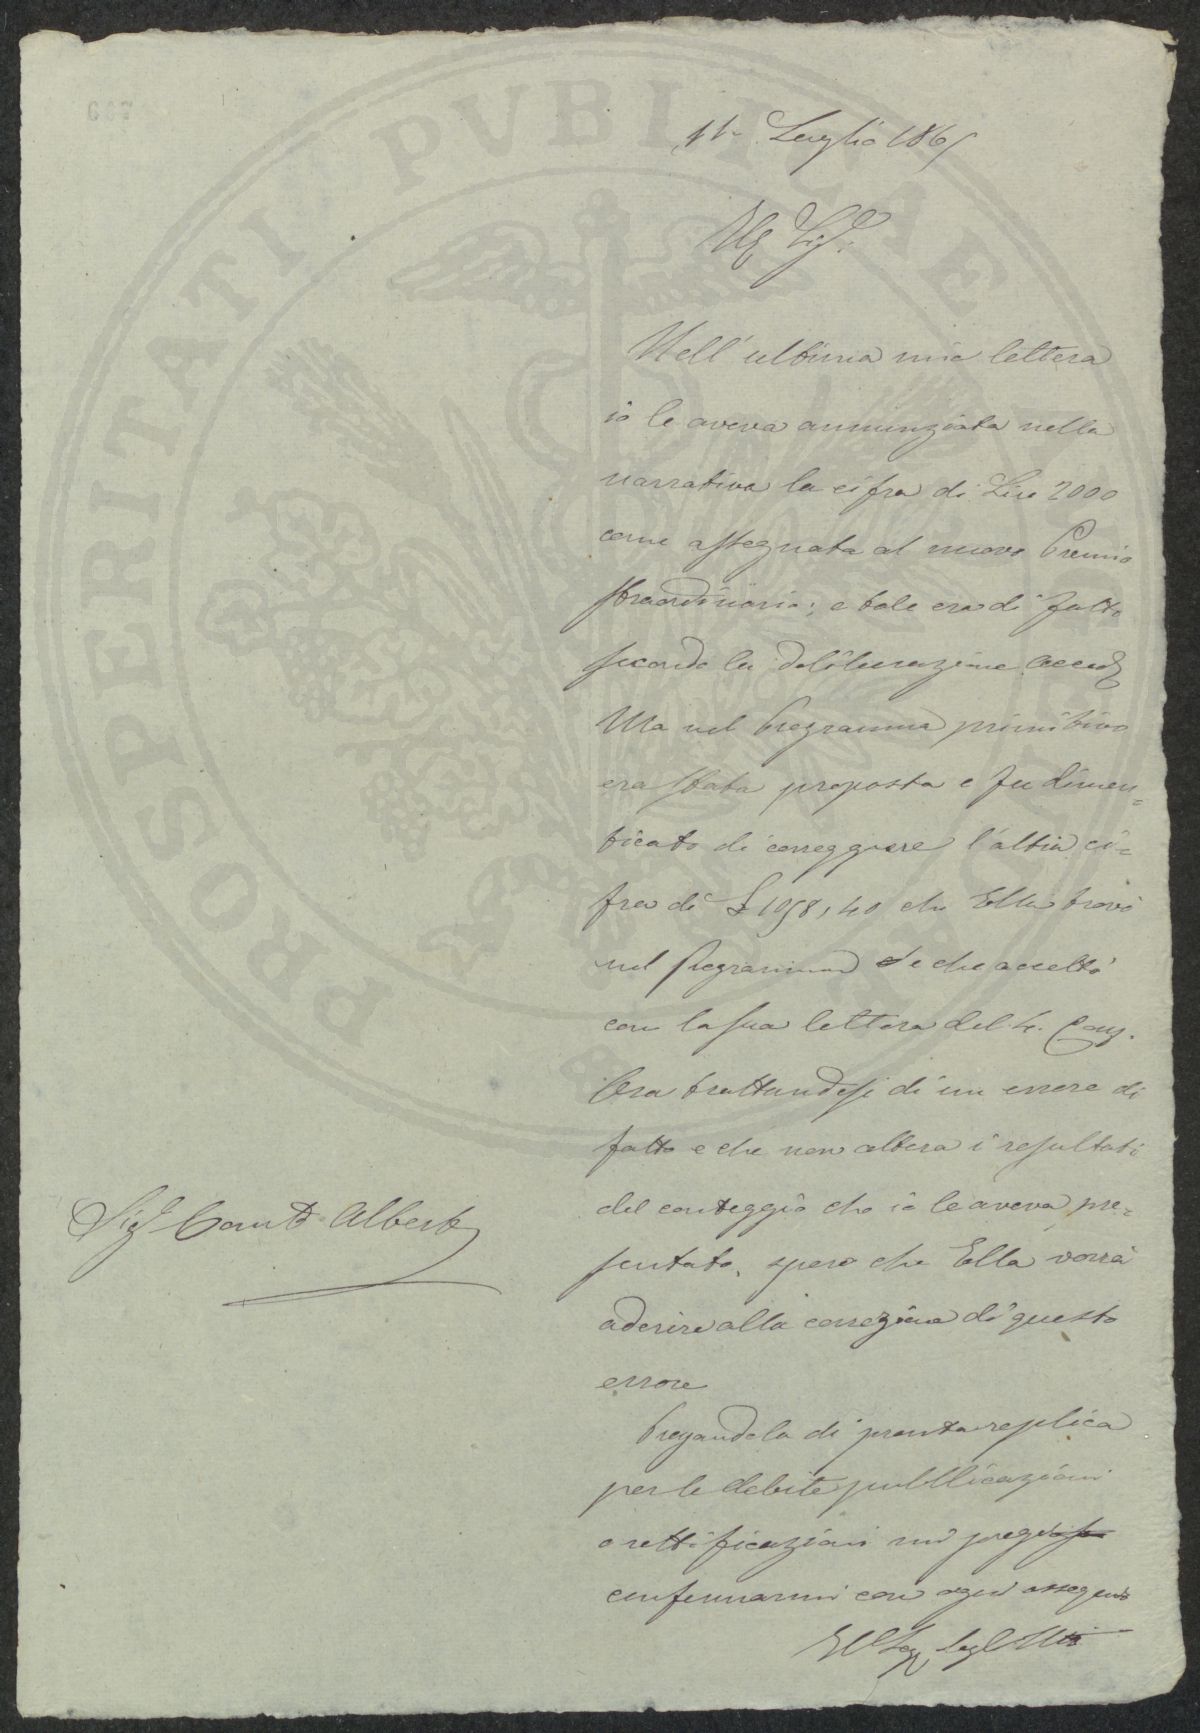 Luglio 1865
Nell'ultima mia lettera
io le aveva annunziata nella
narrativa la cifra di Lire 2000
come assegnata al nuovo Premio
straordinario; e tale era di fatto
secondo la deliberazione Accad
Ma nel Programma primitivo
era stata proposta e fu dimen=
ticato di correggere l'altra ci=
fra di £ 1058,40 che Ella trovò
nel Programma e che accettò
con la sua lettera del 4.
Ora trattandosi di un errore di
fatto e che non altera i resultati
del conteggio che io le aveva pre=
sentato, spero che Ella vorrà
aderire alla correzione di questo
errore
Pregandola di pronta replica
per le debite pubblicazioni
o rettificazioni mi pregio
confermarmi con ogni ossequio
Il Seg. degli Atti
Sig.r Alberto
PROSPERITATI PUBLICAE